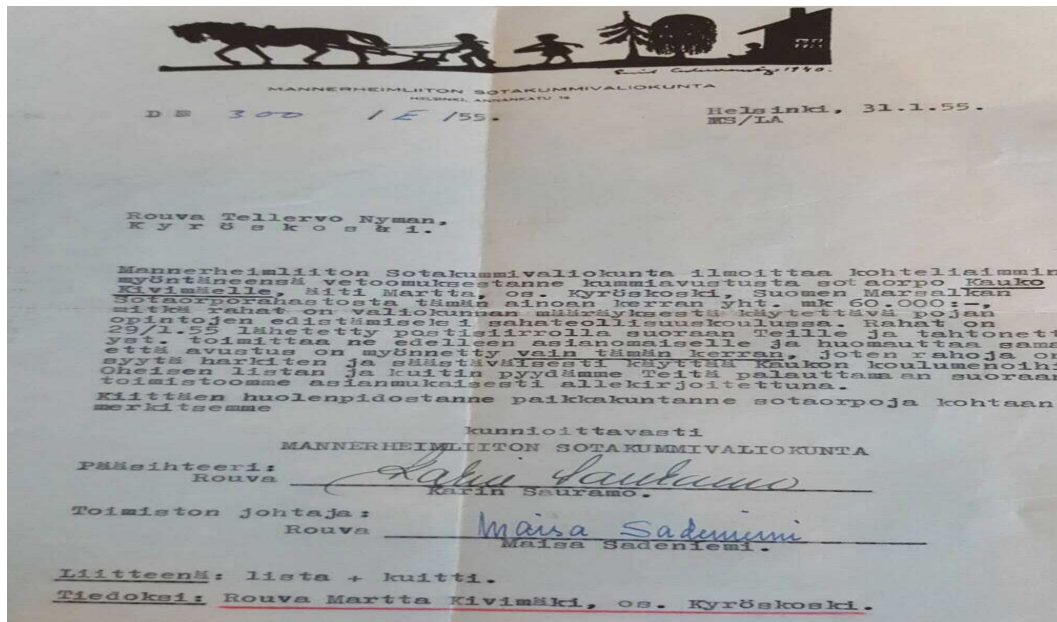 1940.
MANNERHEIMLIITON SOTAKUMMIVALIOKUNTA
HELSINKI, ANNANKATU 18
D N 300 / E /55.
Helsinki, 31.1.55.
MS/LA
Rouva Tellervo Nyman,
K y r ö s k o s k i.
Mannerheimliiton Sotakummivaliokunta ilmoittaa kohteliaimmin
myöntäneensä vetoomuksestanne kummiavustusta sotaorpo Kauko
Kivimäelle, äiti Martta, os. Kyröskoski, Suomen Marsalkan
Sotaorporahastosta tämän ainoan kerran yht. mk 60.000:—
mitkä rahat on valiokunnan määräyksestä käytettävä pojan
opintojen edistämiseksi sahateollisuuskoulussa. Rahat on
29/1.55 lähetetty postisiirrolla suoraan Teille ja tahtonette
yst. toimittaa ne edelleen asianomaiselle ja huomauttaa sama
että avustus on myönnetty vain tämän kerran, joten rahoja on
syytä harkiten ja säästäväisesti käyttää Kaukon koulumenoihi
Oheisen listan ja kuitin pyydämme Teitä palauttamaan suoraan
toimistoomme asianmukaisesti allekirjoitettuna.
Kiittäen huolenpidostanne paikkakuntanne sotaorpoja kohtaan
merkitsemme
kunnioittavasti
MANNERHEIMLIITON SOTAKUMMIVALIOKUNTA
Pääsihteeri:
Rouva Karin Sauramo
Karin Sauramo.
Toimiston johtaja:
Rouva Maisa Sadeniemi
Maisa Sadeniemi.
Liitteenä: lista + kuitti.
Tiedoksi: Rouva Martta Kivimäki, os. Kyröskoski.